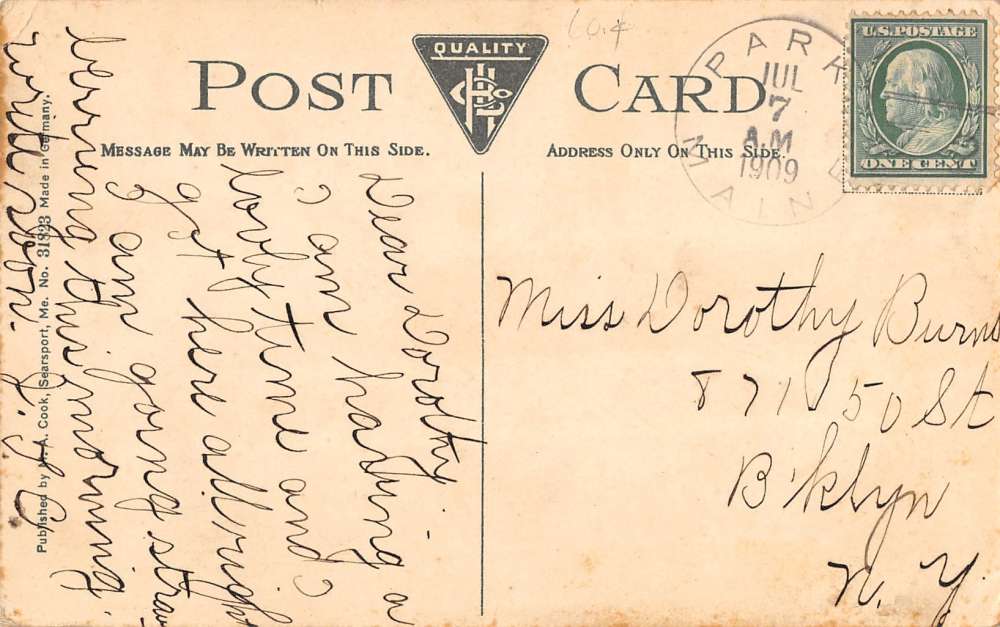 6c.¢
QUALITY
HLCo
POST CARD
MESSAGE MAY BE WRITTEN ON THIS SIDE.
ADDRESS ONLY ON THIS SIDE.
PARK
MAINE
JUL
7
A.M
1909
U.S. POSTAGE
ONE CENT
Dear Dorothy -
I am having a
lovely time and I
got here all right
I am going straw
berring this morning.
write soon.
Miss Dorothy Burns
871 50 St
B'klyn
N. Y.
Published by N. A. Cook, Searsport, Me. No. 31823 Made in Germany.